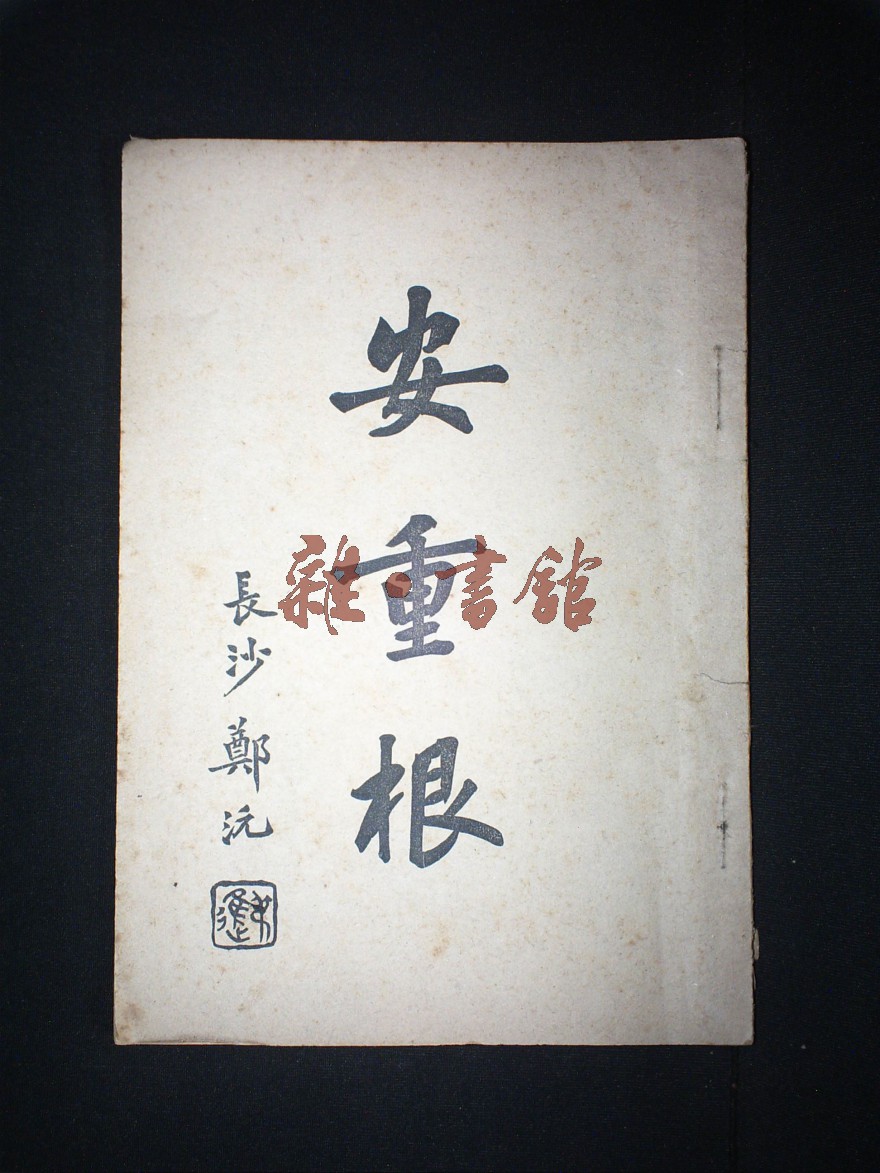 安重根
長沙鄭沅
雜·書館